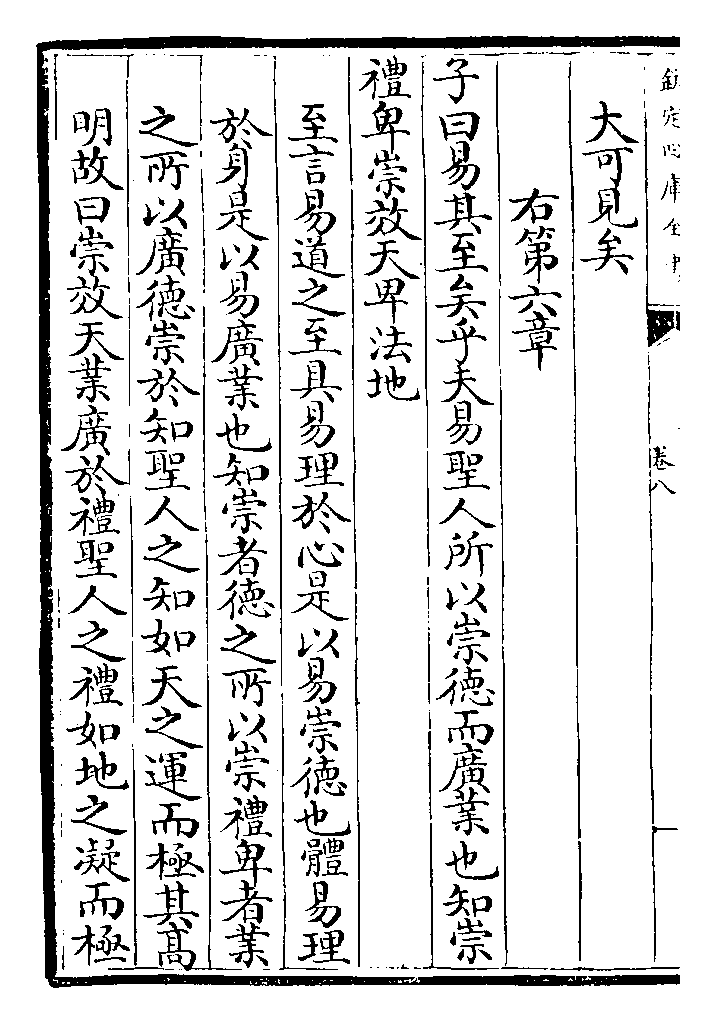 欽定四庫全書
卷八
大可見矣
右第六章
子曰易其至矣乎夫易聖人所以崇德而廣業也知崇
禮卑崇效天卑法地
至言易道之至具易理於心是以易崇德也體易理
於身是以易廣業也知崇者德之所以崇禮卑者業
之所以廣德崇於知聖人之知如天之運而極其高
明故曰崇效天業廣於禮聖人之禮如地之凝而極